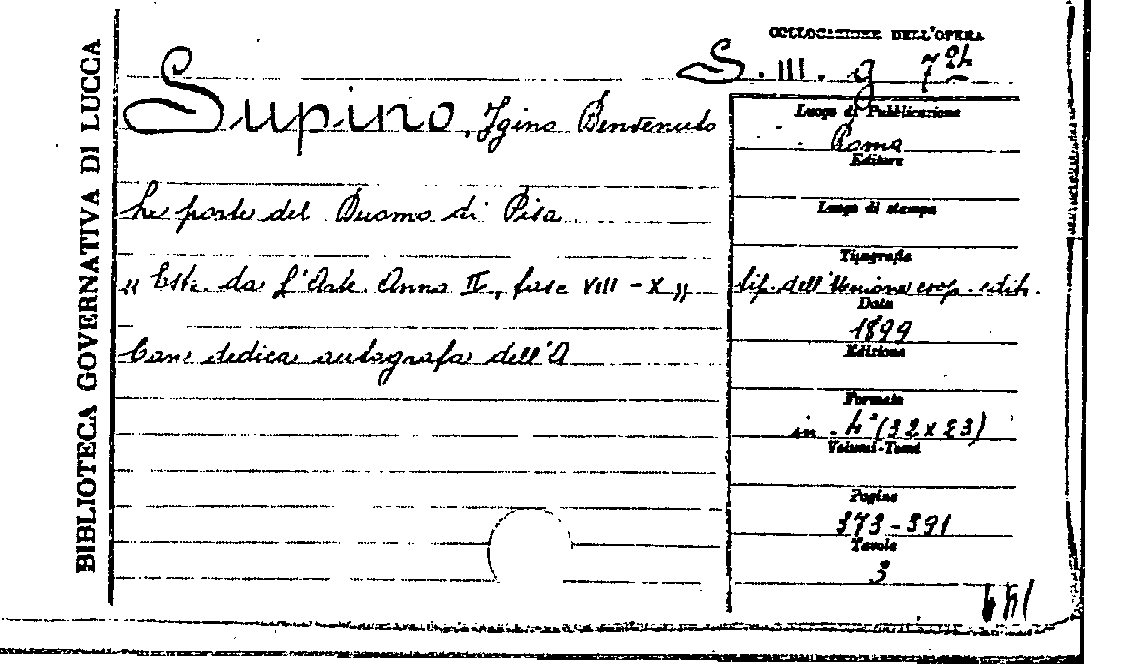 BIBLIOTECA GOVERNATIVA DI LUCCA
COLLOCAZIONE DELL'OPERA
S. III. g
Supino, Igino Benvenuto
Le porte del Duomo di Pisa
„ Estr. da L'Arte Anno II, fasc VIII - X „
Con dedica autografa dell'A
Luogo di Pubblicazione
Roma
Editore
Luogo di stampa
Tipografia
tip. dell'Unione coop. edit.
Data
1899
Edizione
Formato
in - 4° (32 x 23)
Volumi-Tomi
Pagine
373-391
Tavole
3